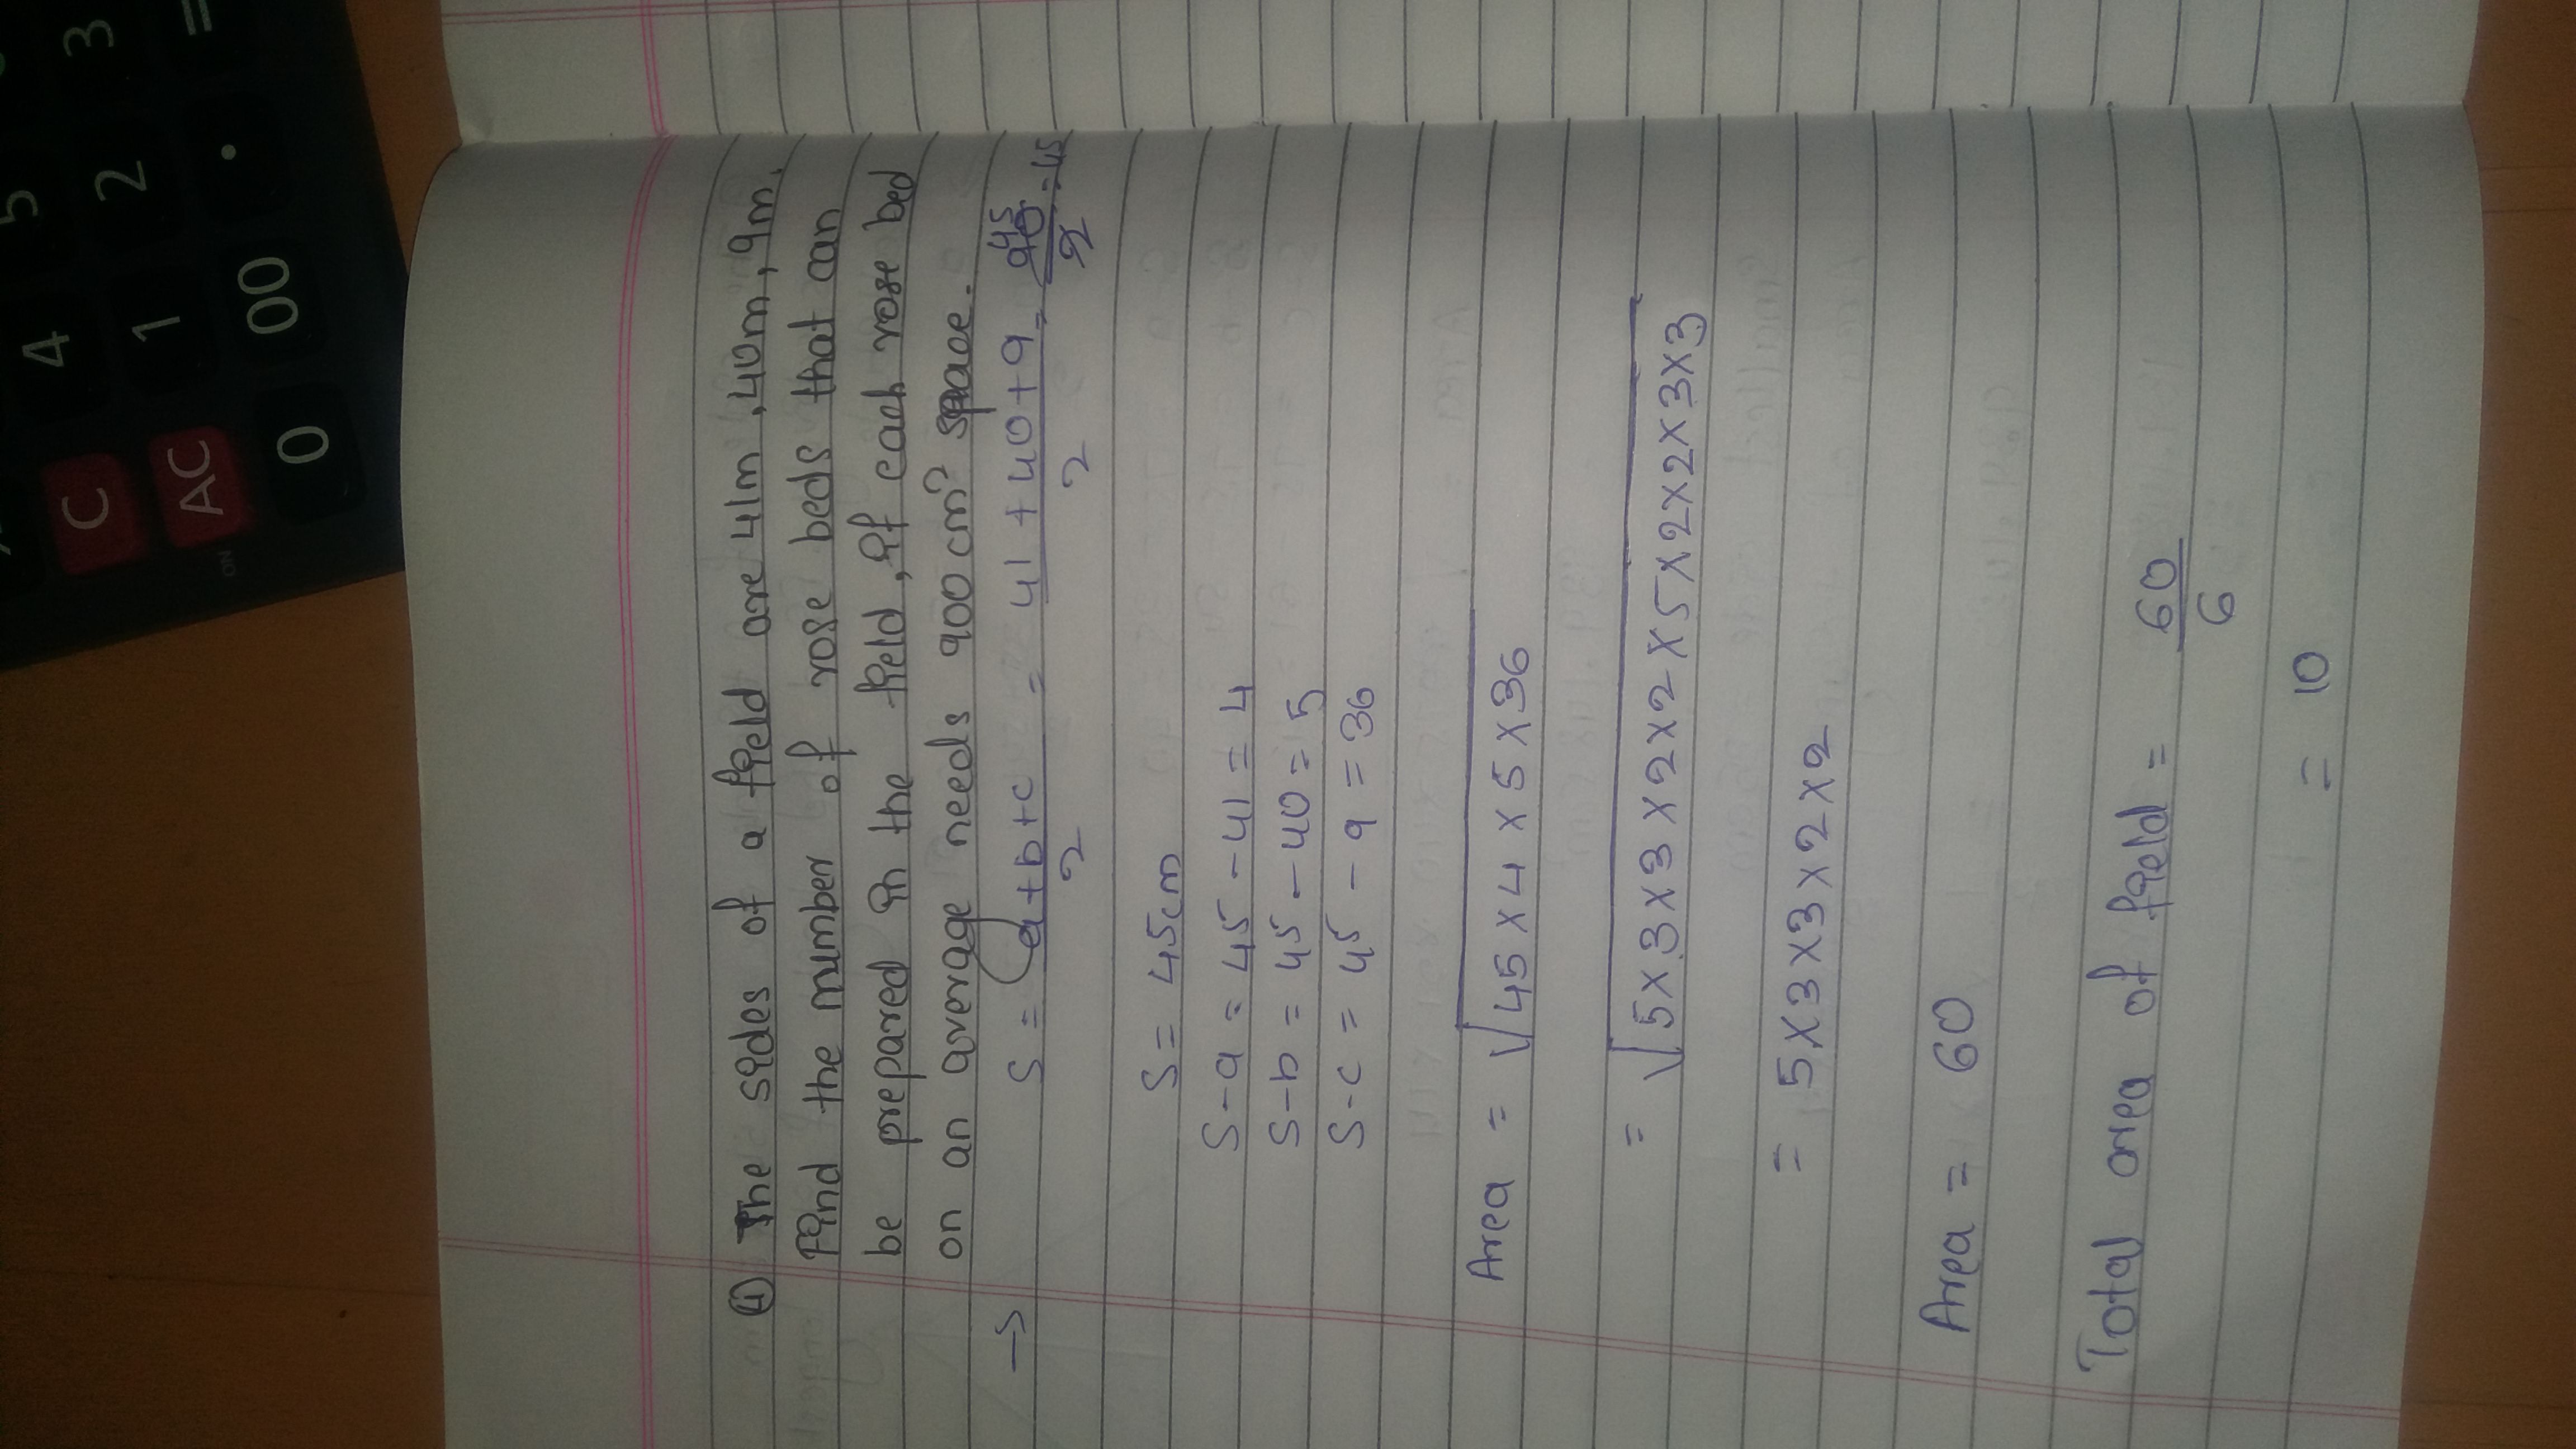 ④ The sides of a field are 41m, 40m, 9m.
Find the number of rose beds that can
be prepared in the field, if each rose bed
on an average needs 900 cm² space.
→ S = a+b+c/2 = 41+40+9/2 = 90/2 = 45
S = 45cm
S-a = 45-41 = 4
S-b = 45-40 = 5
S-c = 45-9 = 36
Area = √45×4×5×36
= √5×3×3×2×2×5×2×2×3×3
= 5×3×3×2×2
Area = 60
Total area of field = 60/6
= 10
C
AC
ON
0
00
.
=
1
2
3
4
5